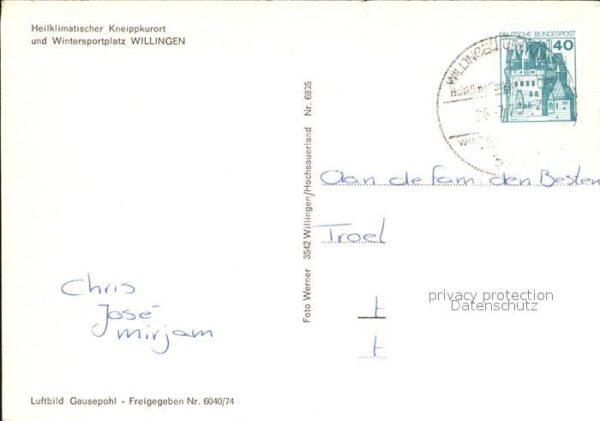 Heilklimatischer Kneippkurort
und Wintersportplatz WILLINGEN
DEUTSCHE BUNDESPOST
40
WILLINGEN
Aan de fam den Besten
Troel
t
t
privacy protection
Datenschutz
Chris
José
mirjam
Foto Werner 3542 Willingen/Hochsauerland Nr. 6935
Luftbild Gausepohl - Freigegeben Nr. 6040/74